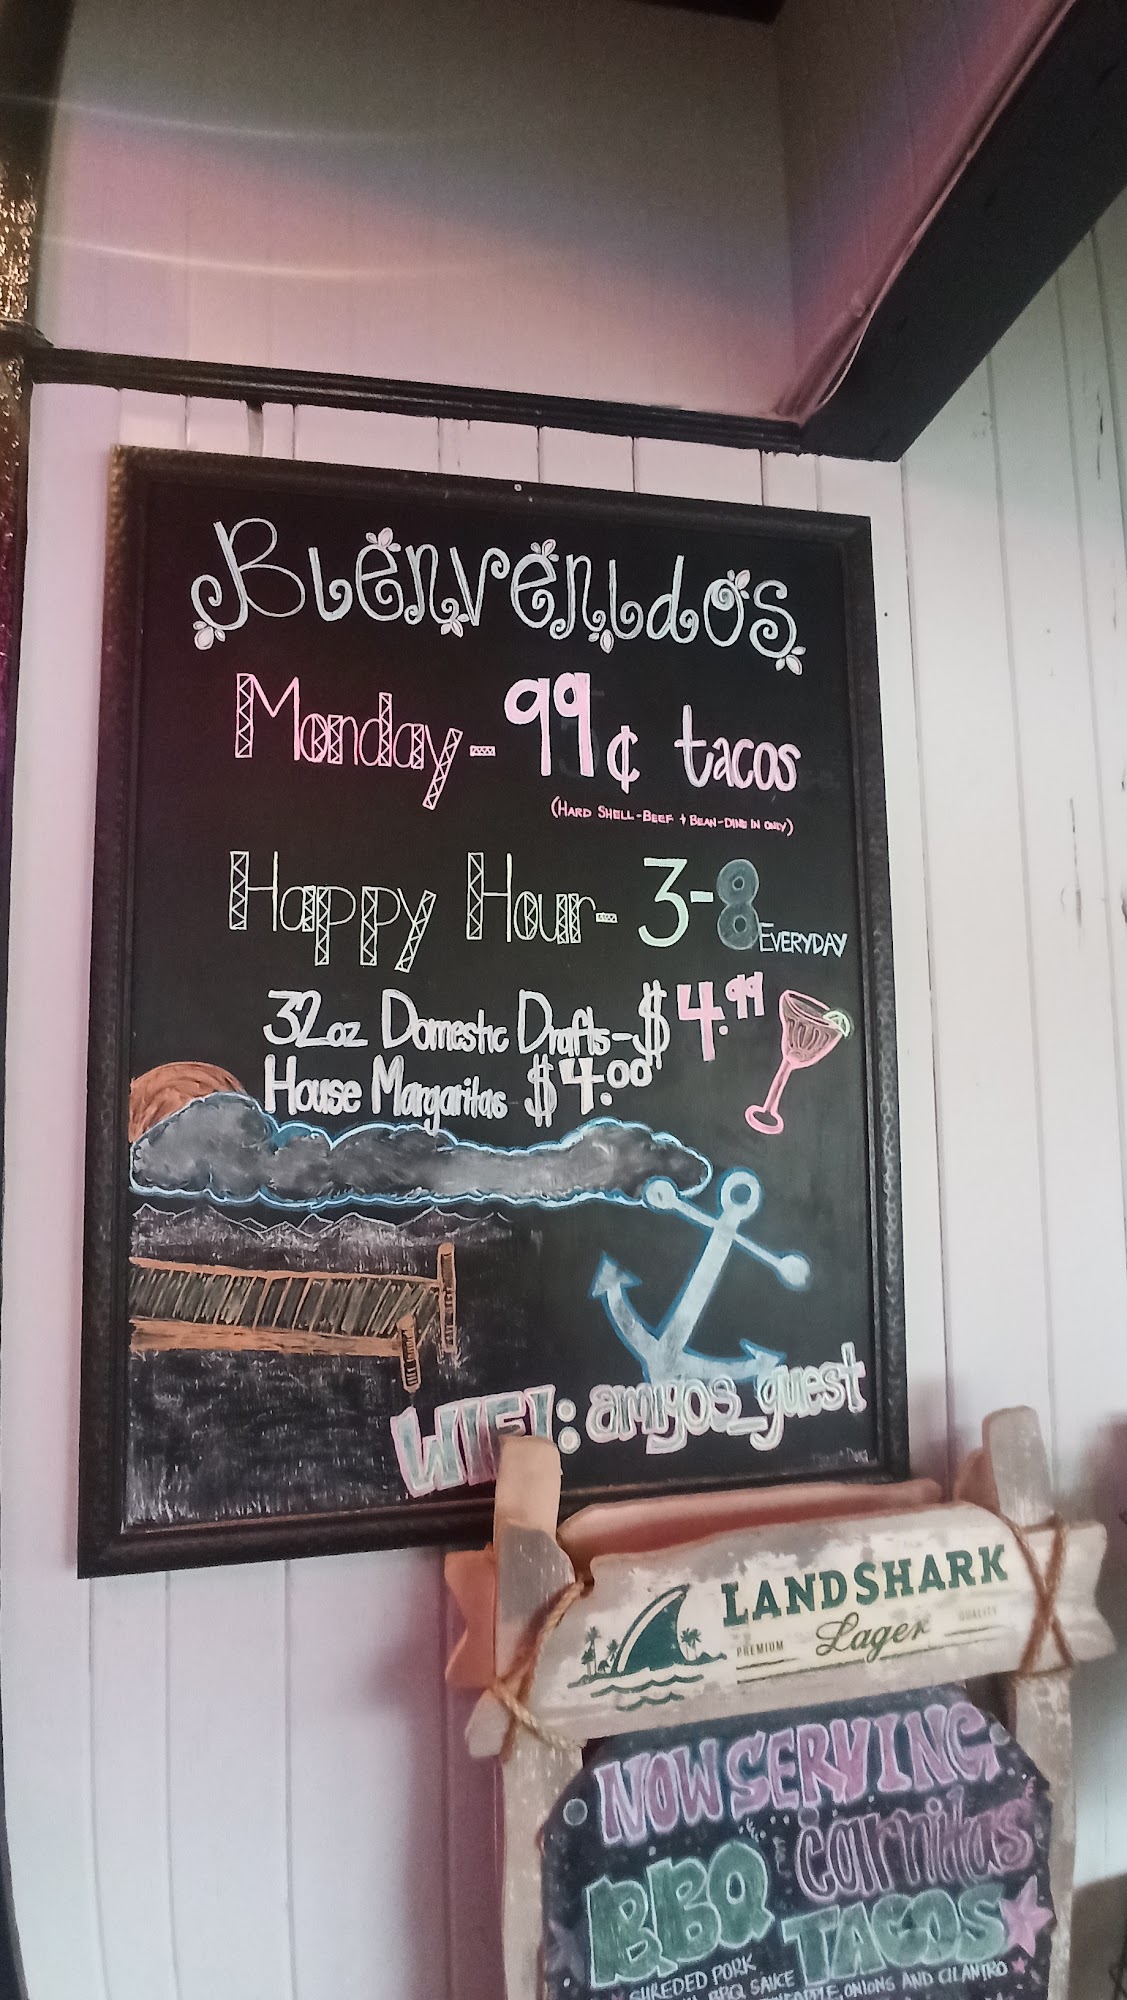 Bienvenidos
Monday - 99¢ tacos
(HARD SHELL - BEEF + BEAN - DINE IN ONLY)
Happy Hour - 3-8 EVERYDAY
32oz Domestic Drafts - $4.99
House Margaritas $4.00
WIFI: amigos_guest
LANDSHARK
PREMIUM Lager QUALITY
NOW SERVING
carnitas
BBQ TACOS
SHREDED PORK
BBQ SAUCE
ONIONS AND CILANTRO